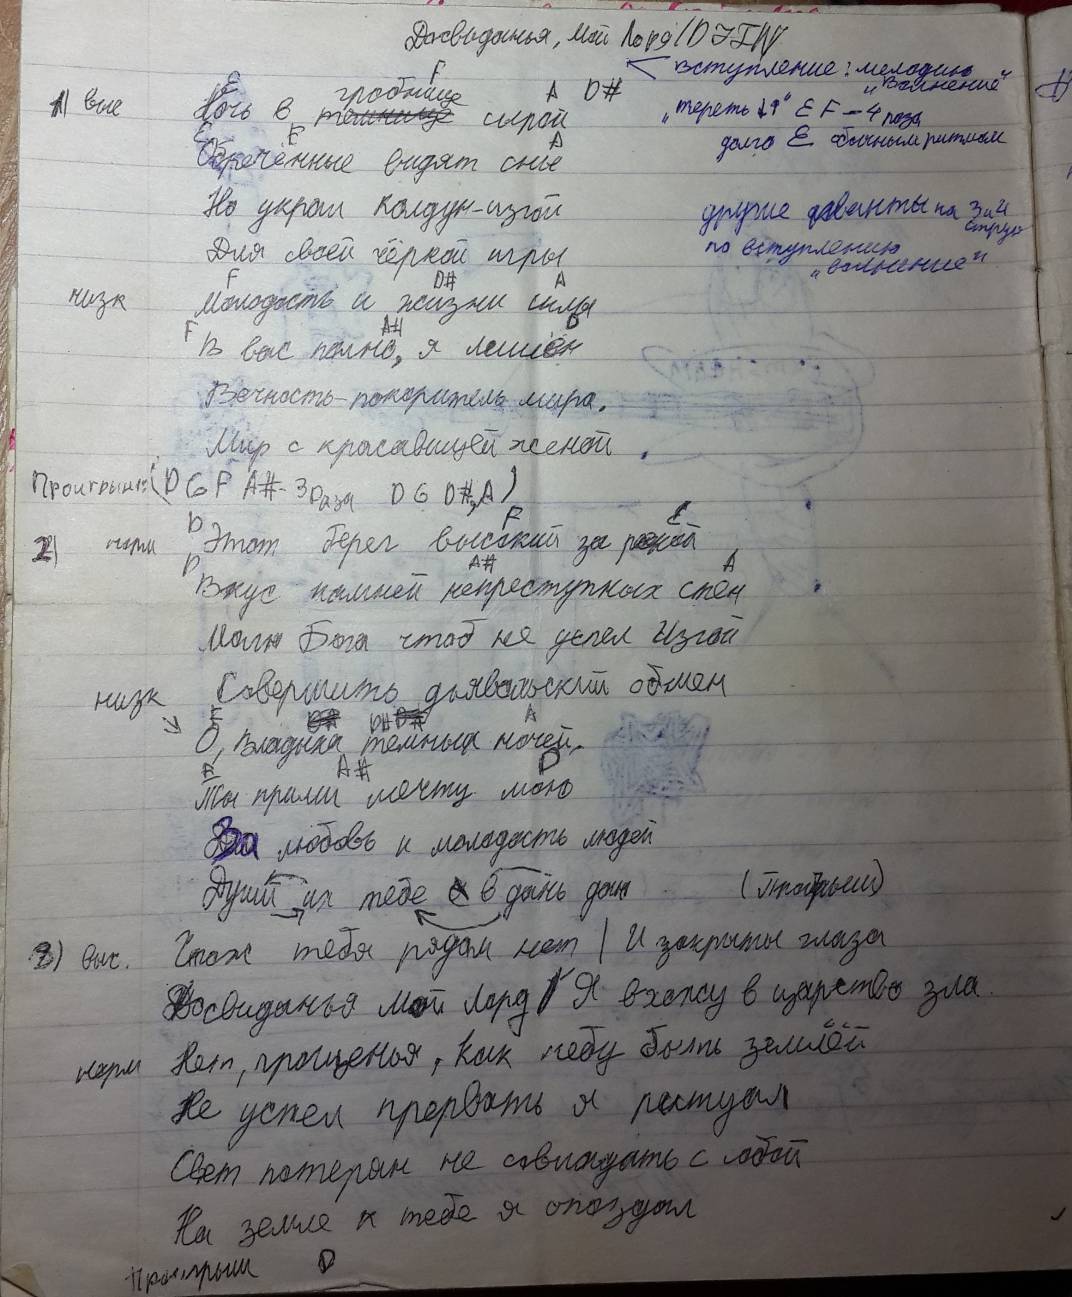 Досвиданья, Мой Лорд/DJIN
Вступление: мелодию
"Волнение"
"тереть ↓↑" E F – 4 раза
долго E обычным ритмом
E F A D#
1) выс Ночь в гробнице сырой
E E A
Обречённые видят сны
Но украл колдун-изгой
другие варианты на 3 и 4 струн
Для своей чёрной игры
по вступлению
"волнение"
F D# A
низк Молодость и жизни силы
F A# D
В вас полно, я лишён
Вечность-покоритель мира,
Мир с красавицей женой
Проигрыш: (D G F A# - 3 раза D G D#, A)
D F C
2) норм Этот берег высокий за рекой
D A# A
Вкус камней непреступных стен
Молю Бога чтоб не успел Изгой
низк Совершить дьявольский обмен
F D# A
О, Владыка темных ночей,
A# D
Ты прими мечту мою
За любовь и молодость людей
Душ их тебе в дань даю (Проигрыш)
3) выс. Что ж тебя рядом нет / И закрыты глаза
Досвиданья Мой Лорд / Я вхожу в царство зла.
норм Нет, прощенья, как небу быть землёй
Не успел прервать я ритуал
Свет потерян не совладать с собой
На земле к тебе я опоздал
Проигрыш D